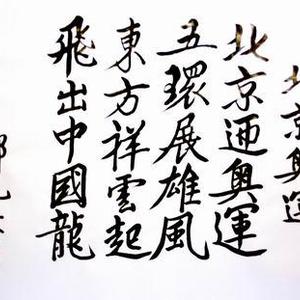 北京奧運
北京迎奧運
五環展雄風
東方祥雲起
飛出中國龍